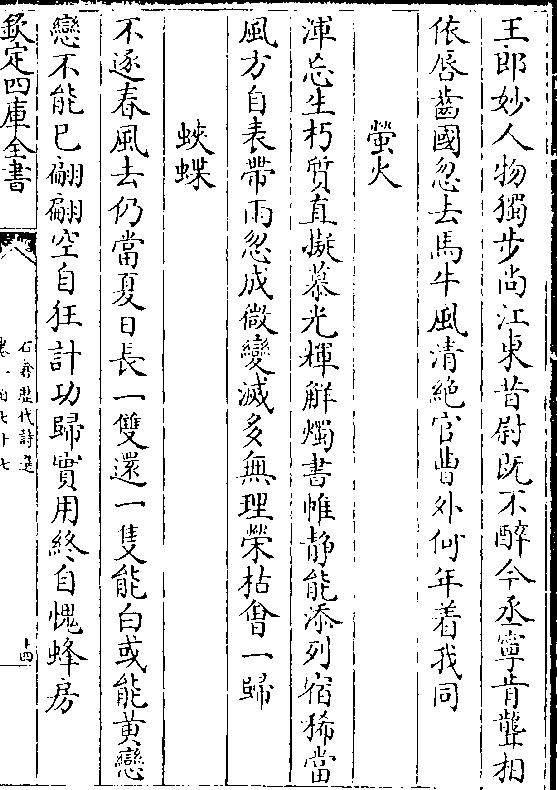 王郎妙人物獨步尚江東昔尉既不醉今丞寧肯聾相
依唇齒國忽去馬牛風清絶官曹外何年着我同
螢火
渾忘生朽質直擬慕光輝解燭書帷静能添列宿稀當
風方自表帶雨忽成微變滅多無理榮枯㑹一歸
蛺蝶
不逐春風去仍當夏日長一雙還一隻能白或能黄戀
戀不能已翩翩空自狂計功歸實用終自愧蜂房
欽定四庫全書
石倉歴代詩選
卷一百七十七
十四